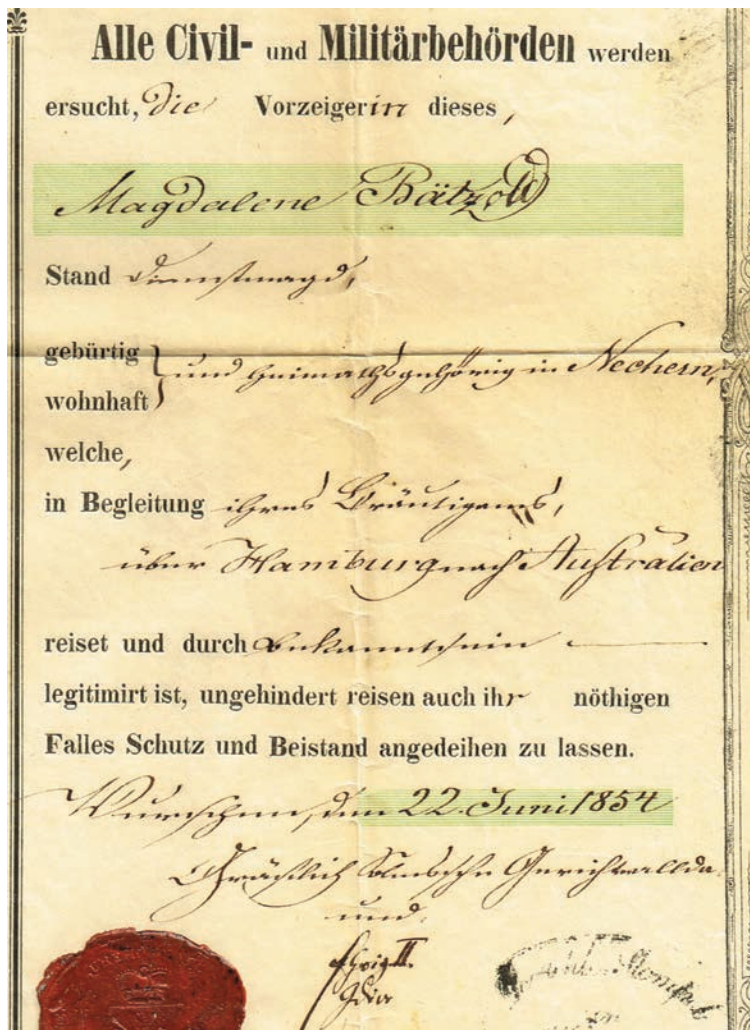 Alle Civil- und Militärbehörden werden
ersucht, die Vorzeigerin dieses,
Magdalene Bätzold
Stand Dienstmagd,
gebürtig
wohnhaft } und heimathsgehörig in Nechern,
welche,
in Begleitung ihres Bräutigams,
über Hamburg nach Australien
reiset und durch Bekanntsein
legitimirt ist, ungehindert reisen auch ihr nöthigen
Falles Schutz und Beistand angedeihen zu lassen.
Wurschen, den 22. Juni 1854
Gräflich
und